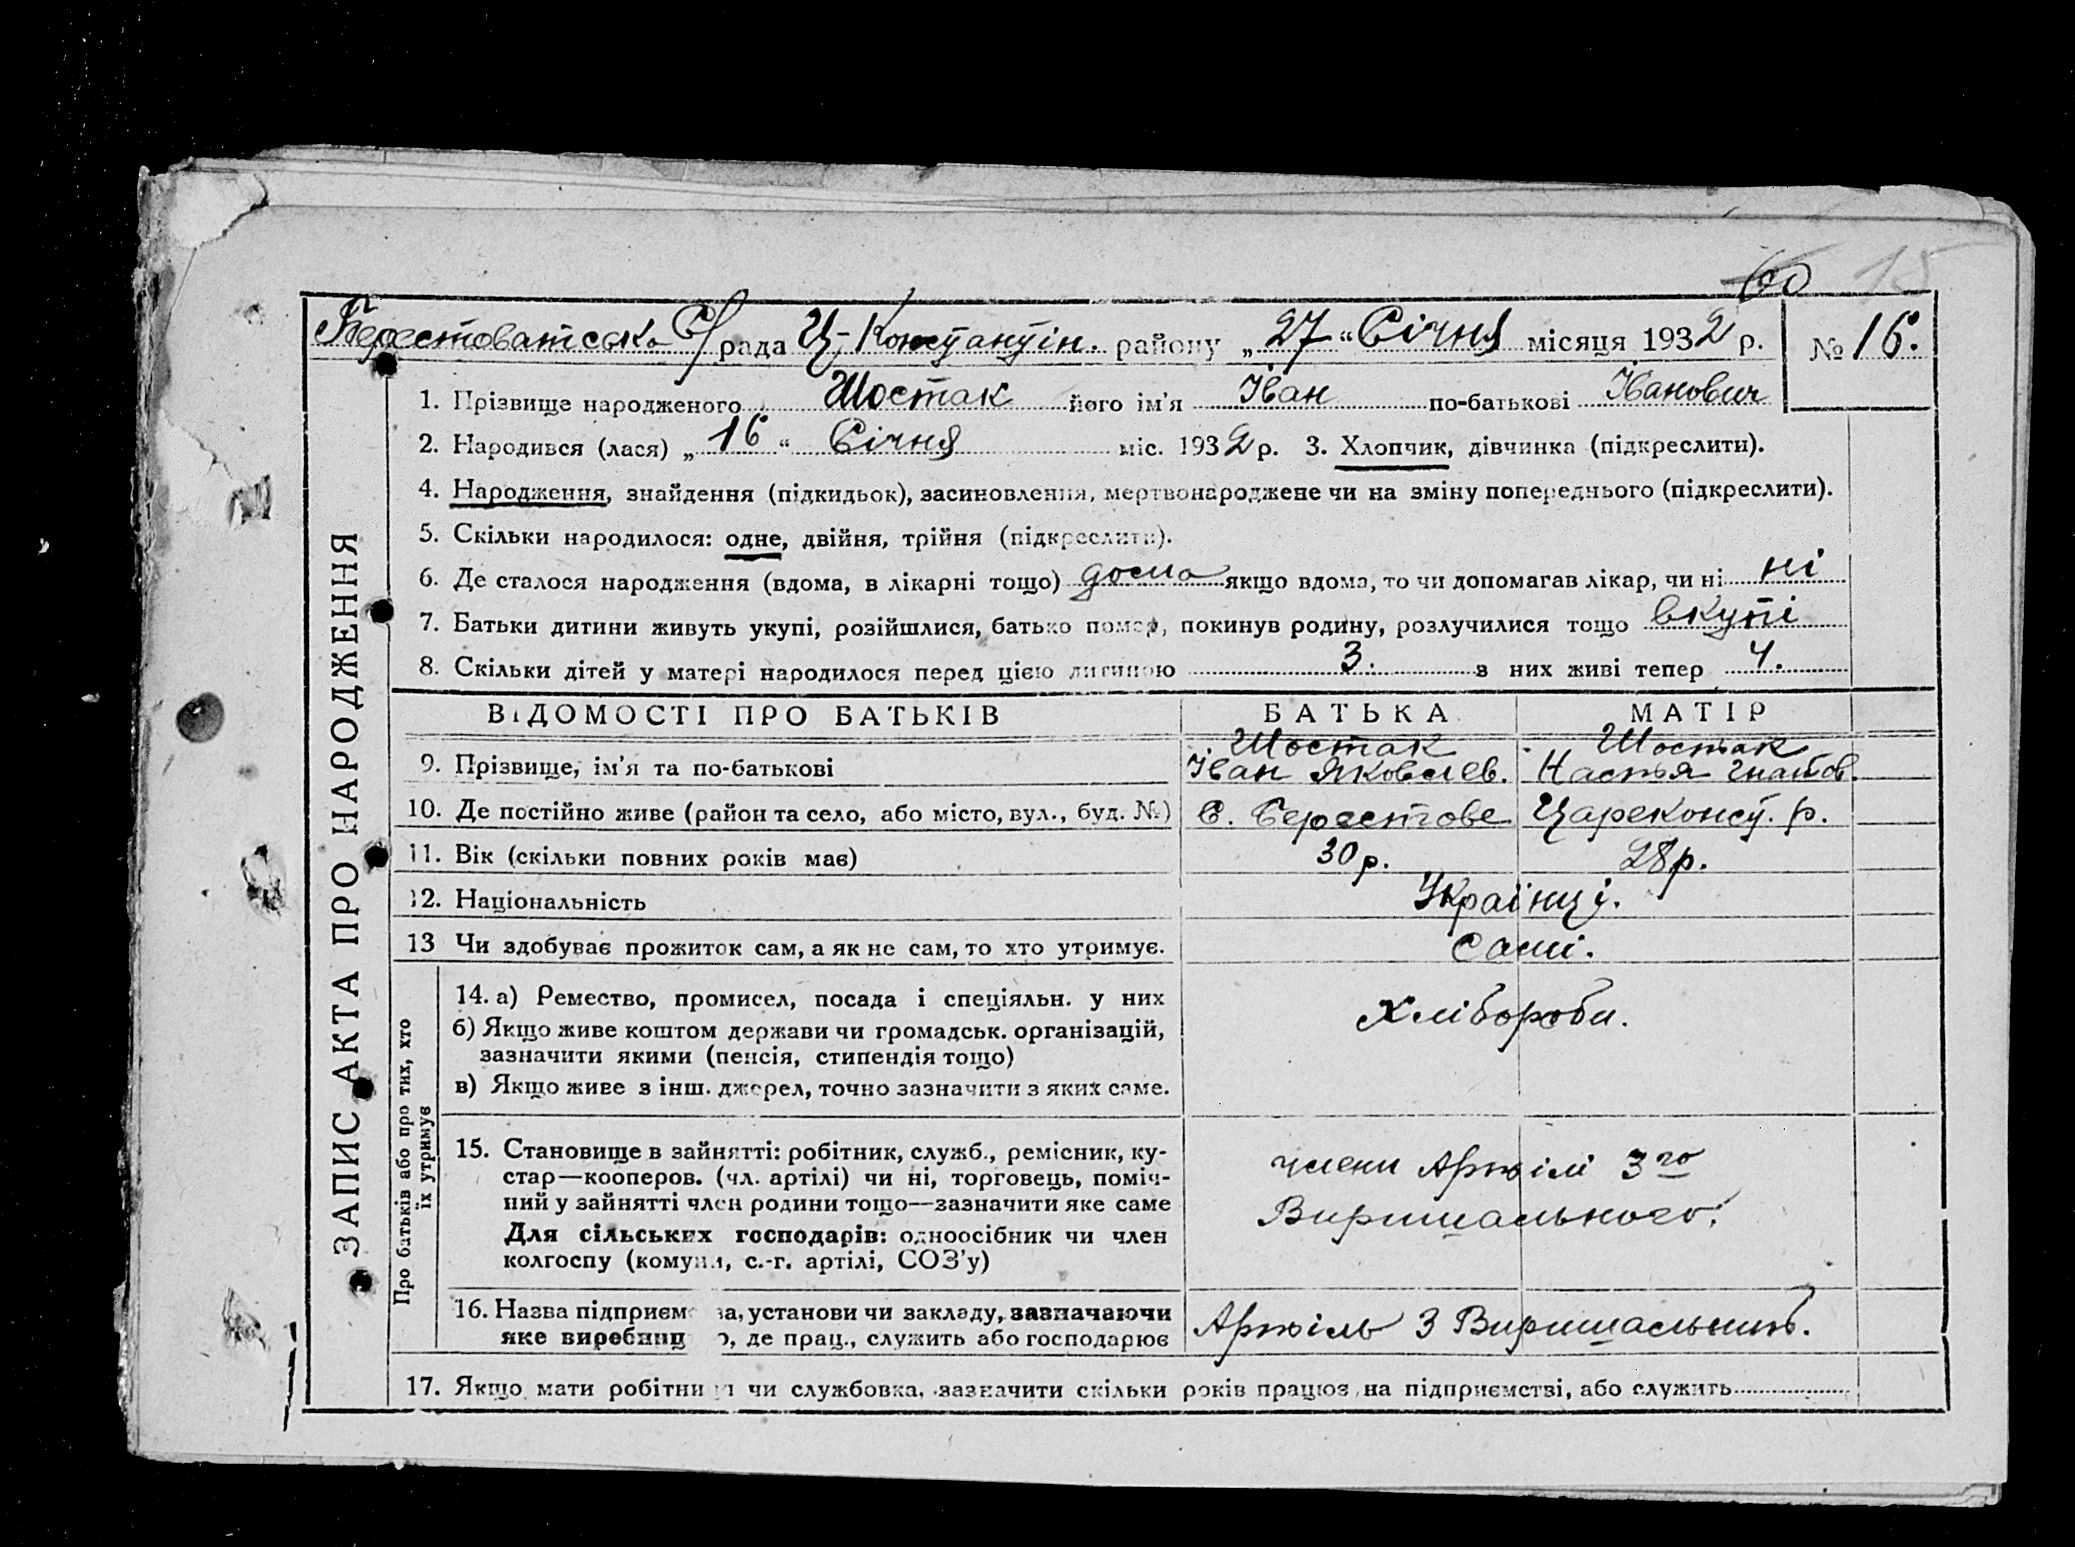 60 15
Берестоватська С/рада Ц-Констянтін. району „27“ Січня місяця 1932 р. № 16.
1. Прізвище народженого Шостак його ім'я Іван по-батькові Іванович
2. Народився (лася) „16“ Січня міс. 1932 р. 3. Хлопчик, дівчинка (підкреслити).
4. Народження, знайдення (підкидьок), засиновлення, мертвонароджене чи на зміну попереднього (підкреслити).
5. Скільки народилося: одне, двійня, трійня (підкреслити).
6. Де сталося народження (вдома, в лікарні тощо) дома якщо вдома, то чи допомагав лікар, чи ні ні
7. Батьки дитини живуть укупі, розійшлися, батько помер, покинув родину, розлучилися тощо вкупі
8. Скільки дітей у матері народилося перед цією дитиною 3. з них живі тепер 4.
ЗАПИС АКТА ПРО НАРОДЖЕННЯ
ВІДОМОСТІ ПРО БАТЬКІВ БАТЬКА МАТІР
Шостак Шостак
9. Прізвище, ім'я та по-батькові Іван Яковлев. Настья Гнатов.
10. Де постійно живе (район та село, або місто, вул., буд. №) С. Берестове Цареконст. р.
11. Вік (скільки повних років має) 30 р. 28 р.
12. Національність Українці.
13 Чи здобуває прожиток сам, а як не сам, то хто утримує. Самі.
Про батьків або про тих, хто
їх утримує
14. а) Ремество, промисел, посада і спеціяльн. у них Хлібороби.
б) Якщо живе коштом держави чи громадськ. організацій,
зазначити якими (пенсія, стипендія тощо)
в) Якщо живе з інш. джерел, точно зазначити з яких саме.
15. Становище в зайнятті: робітник, служб., ремісник, ку-
стар—кооперов. (чл. артілі) чи ні, торговець, поміч-
ний у зайнятті член родини тощо—зазначити яке саме
Для сільських господарів: одноосібник чи член
колгоспу (комуни, с.-г. артілі, СОЗ'у)
члени Артілі 3го
Виришального.
16. Назва підприємства, установи чи закладу, зазначаючи
яке виребництво, де прац., служить або господарює Артіль 3 Виришальний.
17. Якщо мати робітниця чи службовка, зазначити скільки років працює на підприємстві, або служить